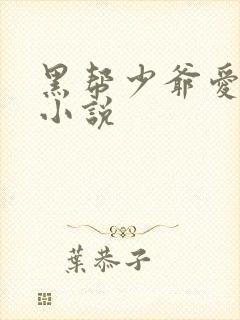 黑帮少爷愛
小說
葉恭子